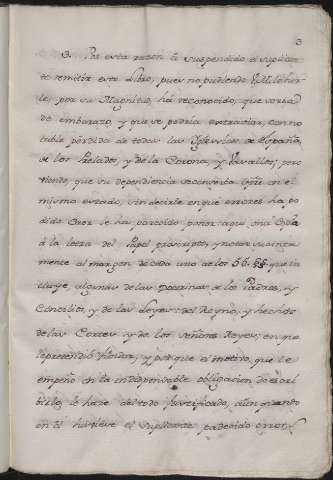 3
3. Por esta razon à suspendido el suplican
te remitir este Libro, pues no pudiendo V.M. leher
le, por su Magnitud, ha reconocido, que servia
de embarazo, y que se podria extraviar, con no
table pérdida de todas las Iglesias de España,
de los Prelados, y de la Corona, y Vasallos; pero
viendo, que su dependencia se conserva en el
mismo estado, sin decirle en que errores ha po
dido caer, le ha parecido poner aqui una Copia
à la letra del Papel proscripto, y notar sucinta
mente al margen de cada uno de los 55. §§ que in
cluye, algunas de las Doctrinas de los Padres, y
Concilios, y de las Leyes del Reyno, y hechos
de las Cortes, y de los Señores Reyes, en que
le pretendiò fundar; y porque el motivo, que le
empeño en la indispensable obligacion de escri
birlo, le hace del todo justificado, aun quando
en èl huviese el Suplicante padecido error,